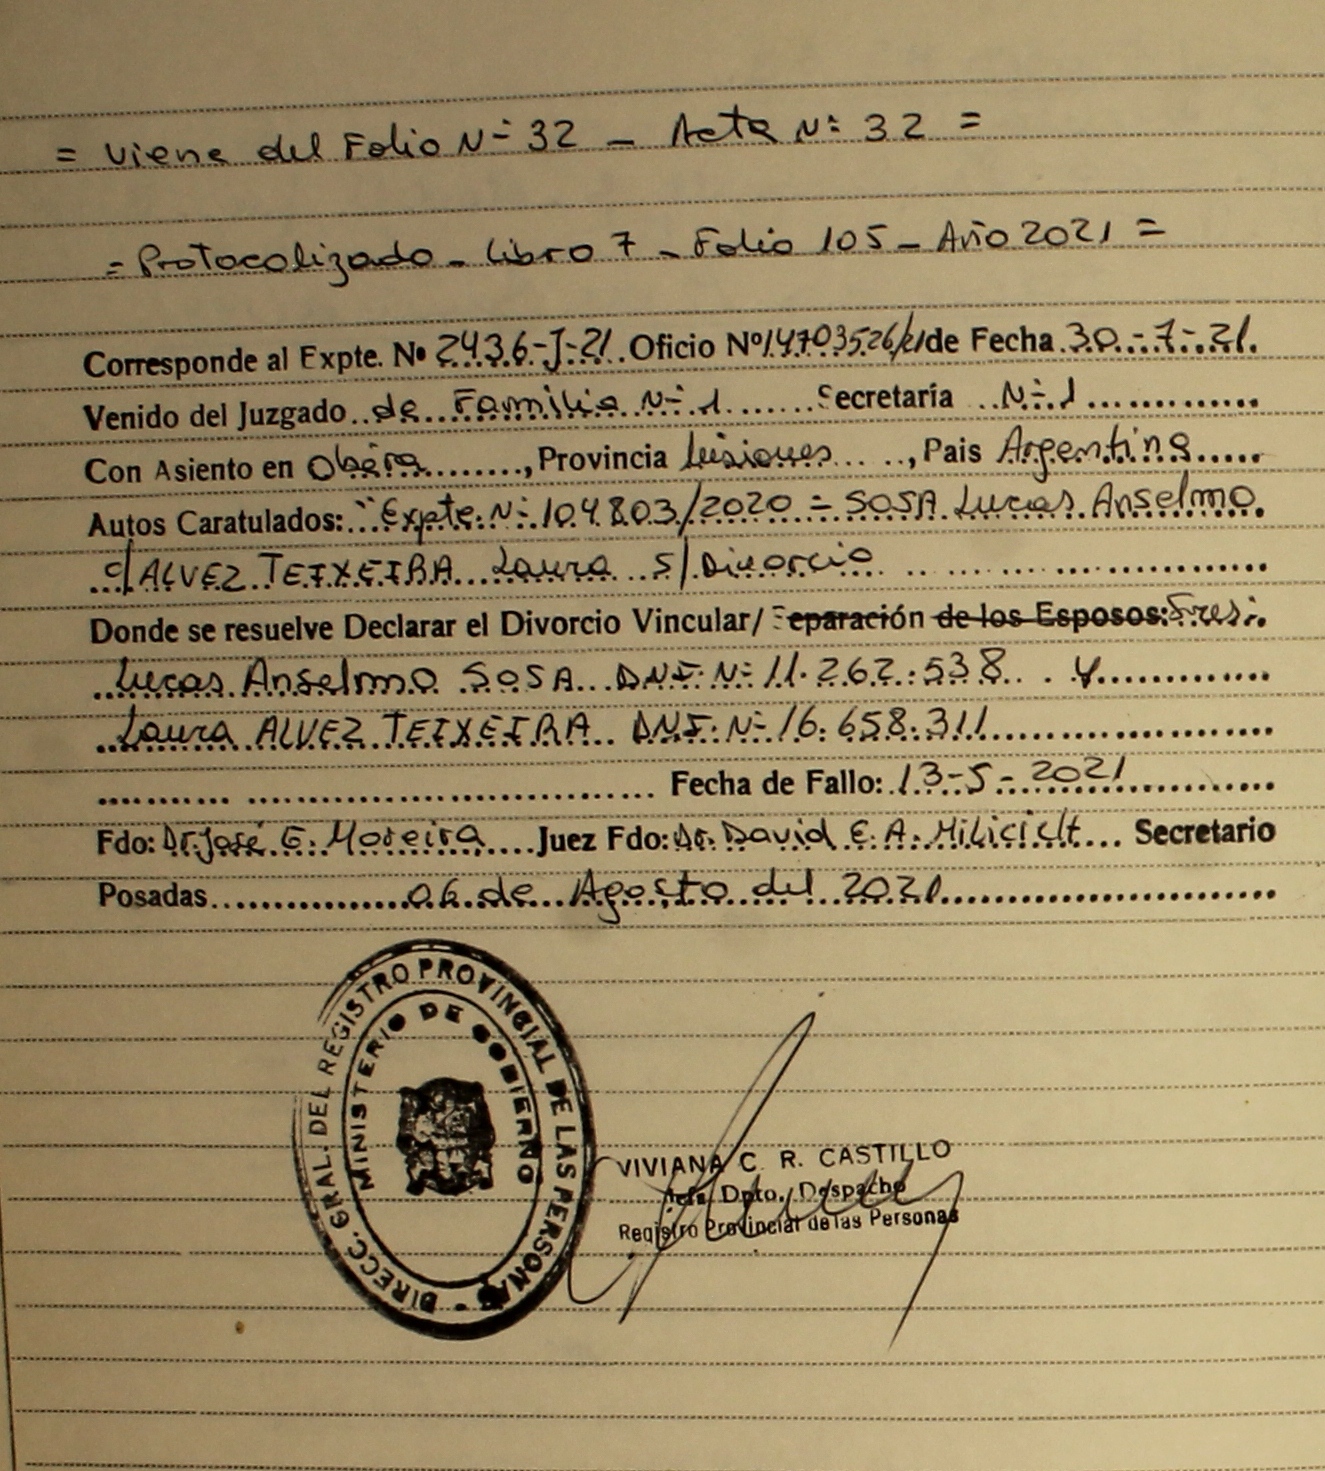 = Viene del Folio Nº 32 – Acta Nº 32 =
= Protocolizado – Libro 7 – Folio 105 – Año 2021 =
Corresponde al Expte. Nº 2436-J-21. Oficio Nº 14703526/21 de Fecha 30-7-21.
Venido del Juzgado de Familia Nº 1 Secretaría Nº 1
Con Asiento en Oberá, Provincia Misiones, Pais Argentina
Autos Caratulados: "Expte. Nº 104803/2020 – SOSA Lucas Anselmo
c/ ALVEZ TEIXEIRA Laura s/ Divorcio
Donde se resuelve Declarar el Divorcio Vincular/ Separación de los Esposos: Sres:
Lucas Anselmo SOSA DNI. Nº 11.262.538 y
Laura ALVEZ TEIXEIRA DNI. Nº 16.658.311
Fecha de Fallo: 13-5-2021
Fdo: Dr. José G. Moreira Juez Fdo: Dr. David E. A. Milicicit Secretario
Posadas 06 de Agosto del 2021
DIRECC. GRAL. DEL REGISTRO PROVINCIAL DE LAS PERSONAS
MINISTERIO DE GOBIERNO
VIVIANA C. R. CASTILLO
Jefa Dpto. Despacho
Registro Provincial de las Personas